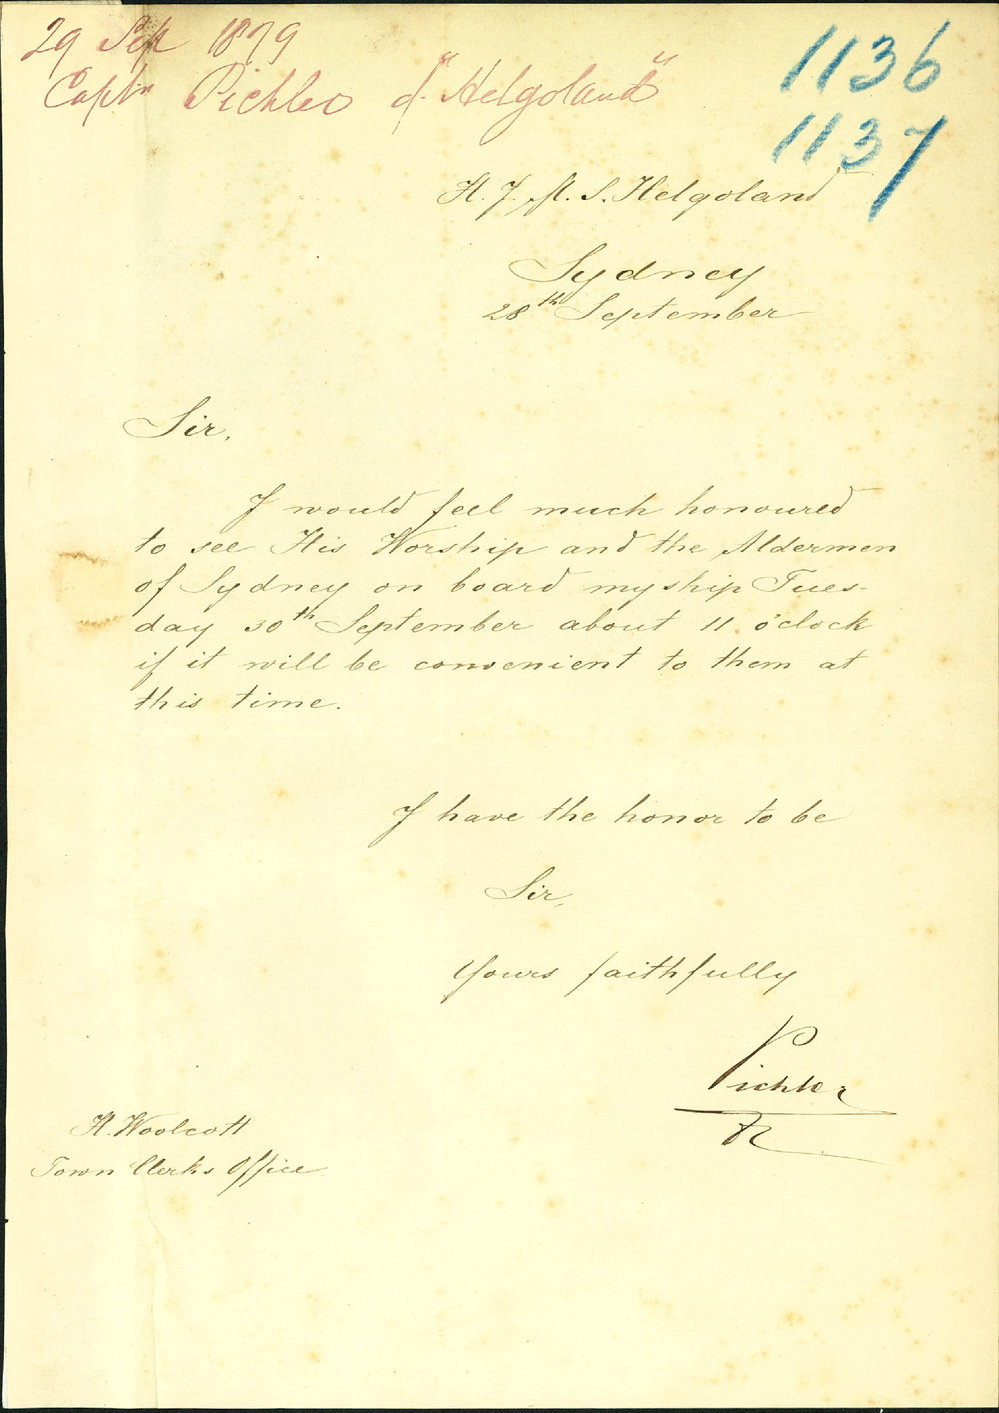 29 Sep 1879
Captn Pichler of "Helgoland"
1136
1137
H. I. M. S. Helgoland
Sydney
28th September
Sir,
I would feel much honoured
to see His Worship and the Aldermen
of Sydney on board my ship Tues-
day 30th September about 11 o'clock
if it will be convenient to them at
this time.
I have the honor to be
Sir,
Yours faithfully
Pichler
H. Woolcott
Town Clerks Office